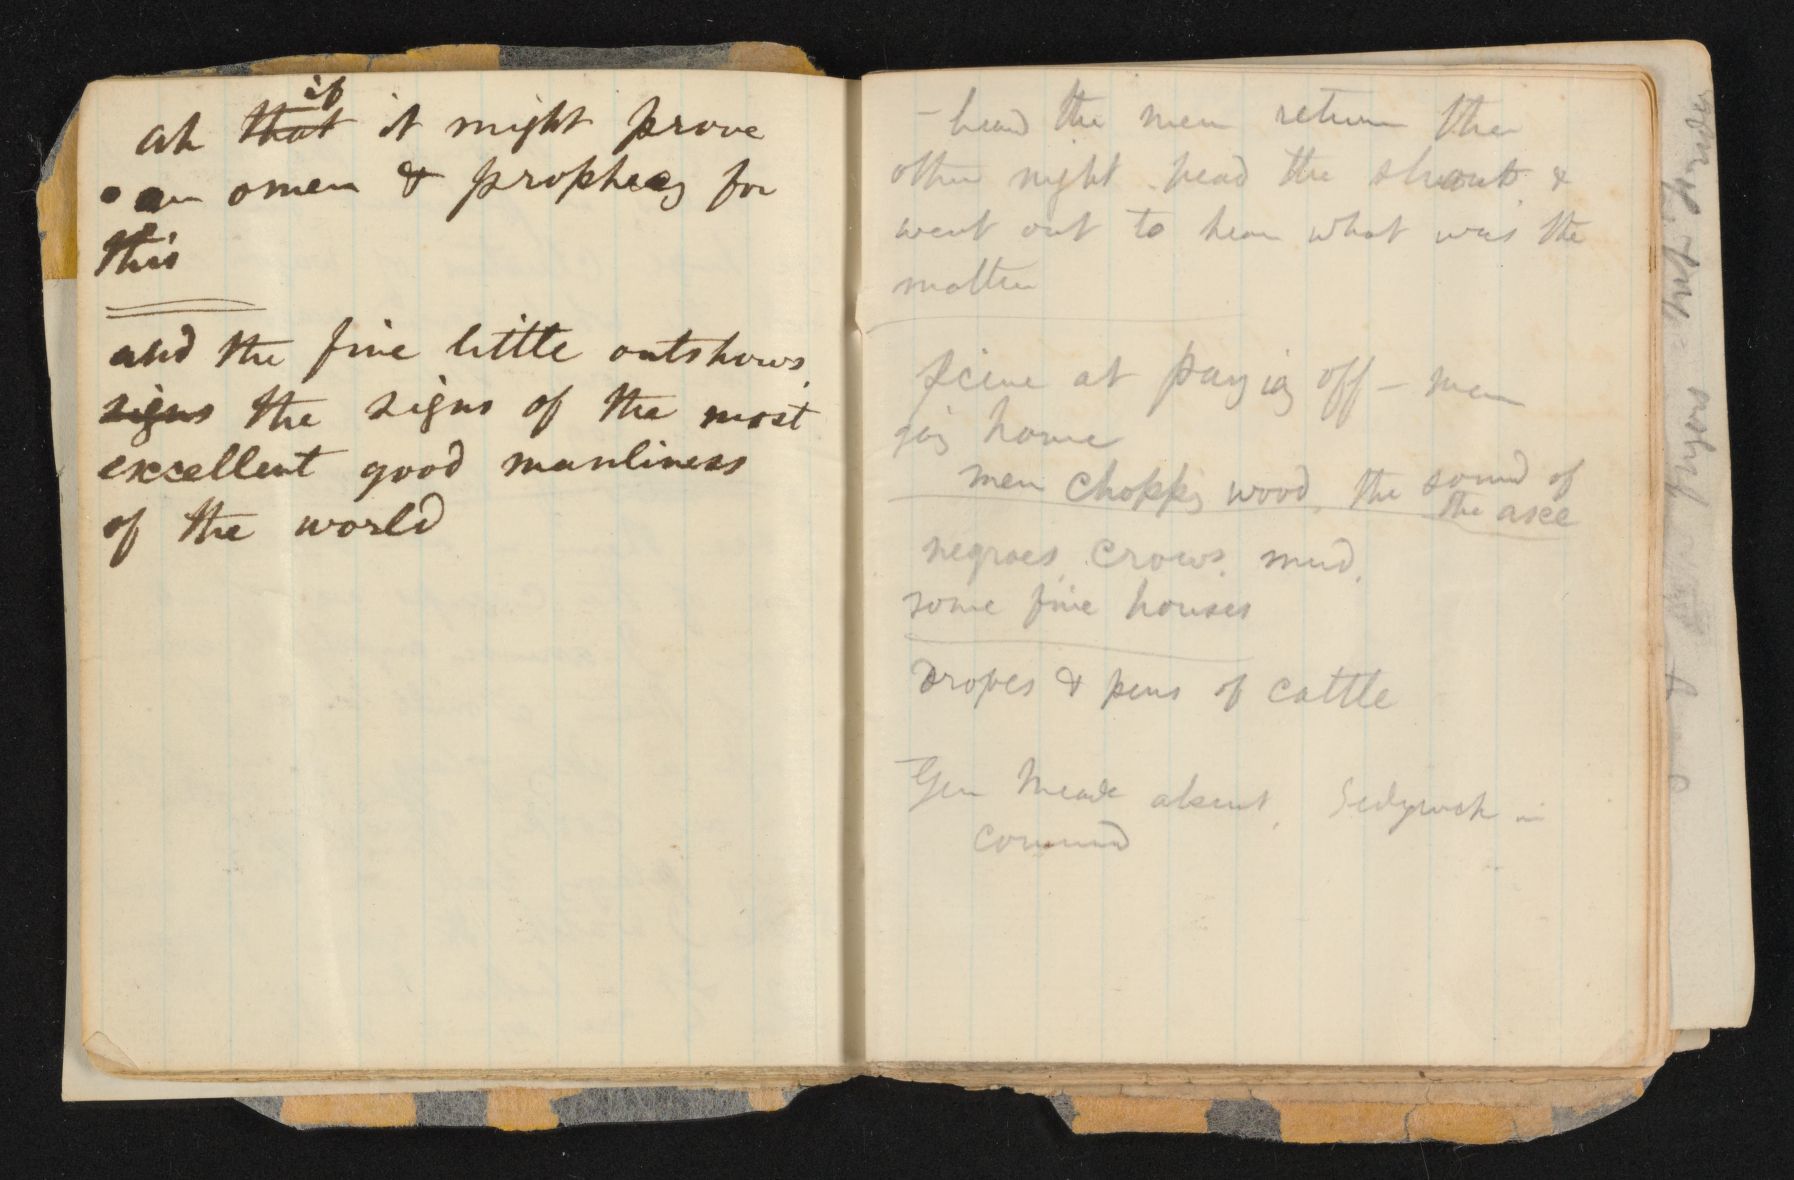 if
ah that it might prove
an omen & prophecy for
this
and the fine little outshows,
signs the signs of the most
excellent good manliness
of the world
– heard the men return the
other night heard the shouts &
went out to hear what was the
matter
Scene at paying off – men
going home
men chopping wood, the sound of
the axe
negroes, crows, mud,
some fine houses
droves & pens of cattle
Gen Meade absent, Sedgwick in
command